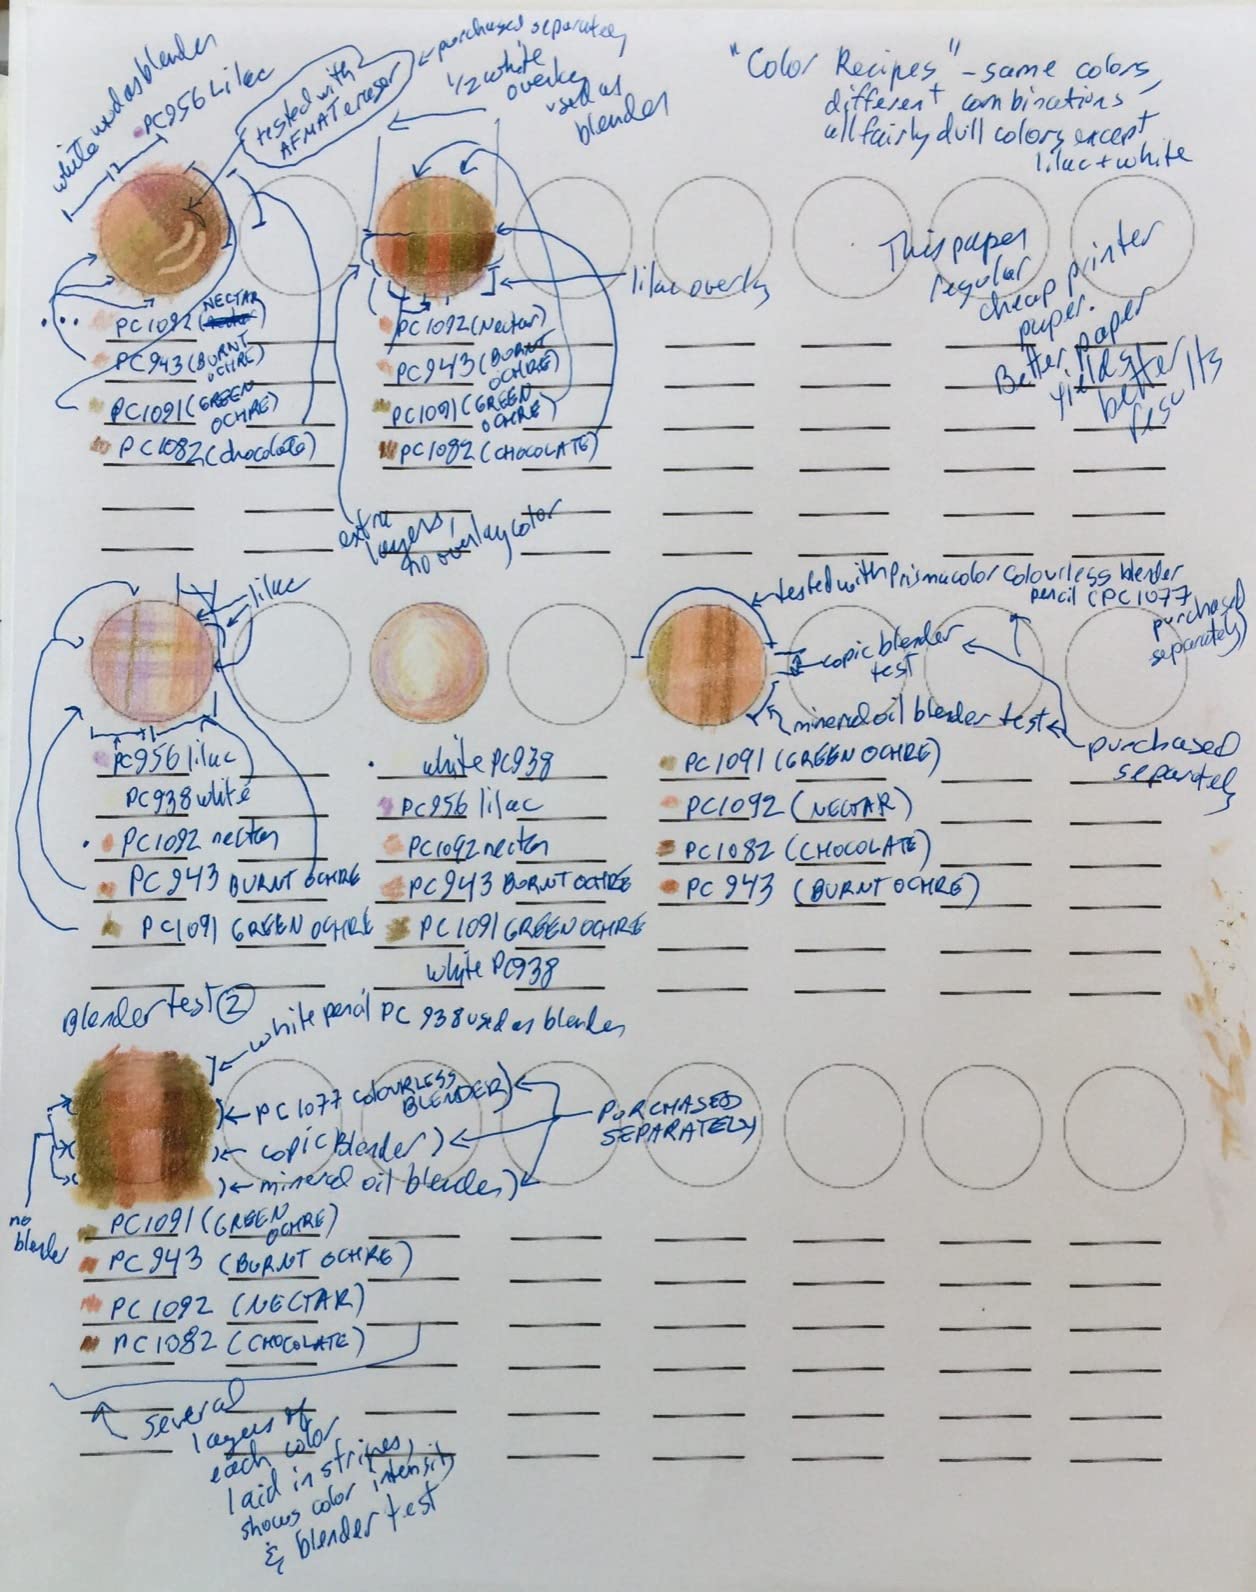 white used as blender
PC956 Lilac
1/2
tested with
AFMAT eraser
purchased separately
1/2 white
overlay
used as
blender
"Color Recipes" - same colors,
different combinations
all fairly dull colors except
lilac + white
This paper
regular
cheap printer
paper.
Better paper
yields
better
results
PC1092 (NECTAR)
PC943 (BURNT
OCHRE)
PC1091 (GREEN
OCHRE)
PC1082 (chocolate)
lilac overlay
PC1092 (Nectar)
PC943 (BURNT
OCHRE)
PC1091 (GREEN
OCHRE)
PC1082 (CHOCOLATE)
extra
layers,
no overlay color
lilac
PC956 lilac
PC938 white
PC1092 nectar
PC943 BURNT OCHRE
PC1091 GREEN OCHRE
white PC938
PC956 lilac
PC1092 nectar
PC943 BURNT OCHRE
PC1091 GREEN OCHRE
white PC938
tested with Prismacolor colourless blender
pencil (PC1077
purchased
separately)
copic blender
test
mineral oil blender test
purchased
separately
PC1091 (GREEN OCHRE)
PC1092 (NECTAR)
PC1082 (CHOCOLATE)
PC943 (BURNT OCHRE)
Blender test 2
white pencil PC 938 used as blender
PC1077 COLOURLESS
BLENDER)
copic Blender)
mineral oil blender)
PURCHASED
SEPARATELY
no
blender
PC1091 (GREEN
OCHRE)
PC943 (BURNT OCHRE)
PC1092 (NECTAR)
PC1082 (CHOCOLATE)
several
layers of
each color
laid in stripes,
shows color intensity
& blender test